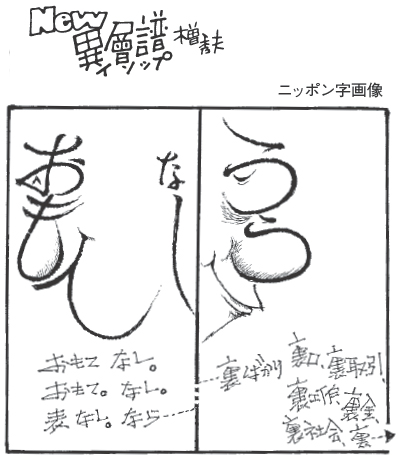 New
異層譜
イソップ
ニッポン字画像
おもて
なし
うら
おもて なし。
おもて。なし。
表なし。なら
裏ばかり
裏口、裏取引、
裏工作、裏金
裏社会、裏